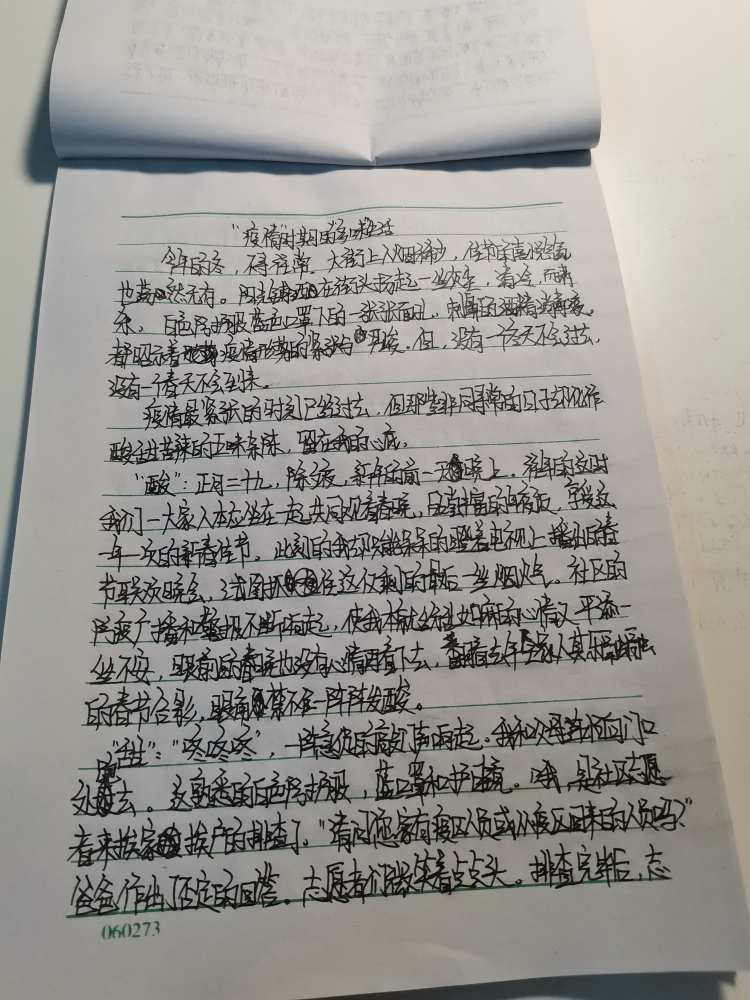 “疫情”时期的多味生活
今年的冬,不寻常。大街上人烟稀少,佳节的喜悦气
也荡然无存。阳光在街头扬起一丝灰尘,清冷,而
。白色防护服蓝色口罩下的一张张面孔,刺鼻的酒精消毒液,
都昭示着疫情形势的紧张与。但,没有一个冬天不会过去,
没有一个春天不会到来。
疫情最紧张的时刻已经过去,但那些非同寻常的日子却化作
酸甜苦辣的五味杂陈,留在我的心底。
“酸”:正月二十九,除夕夜,新年的前一天晚上。往年的这时
我们一大家人本应坐在一起共同观看春晚,品尝丰富的年夜饭,享受这
一年一次的新春佳节。此刻的我却只能呆呆的盯着电视上播出的春
节联欢晚会,试图抓住这仅剩的最后一丝烟火气。社区的
防疫广播和警报不断响起,使我本就乱如麻的心情又平添一
丝不安,眼前的春晚也没有心情再看下去,翻看去年全家人其乐融融
的春节合影,眼前禁不住一阵阵发酸。
“甜”:“咚咚咚”,一阵急促的敲门声响起。我和父母齐齐向门口
处去。这熟悉的白色防护服,蓝口罩和护目镜。哦,是社区志愿
者来挨家挨户的排查了。“请问您家有疫区人员或从疫区回来的人员吗?”
爸爸作出了否定的回答。志愿者们微笑着点点头。排查完毕后,志
060273